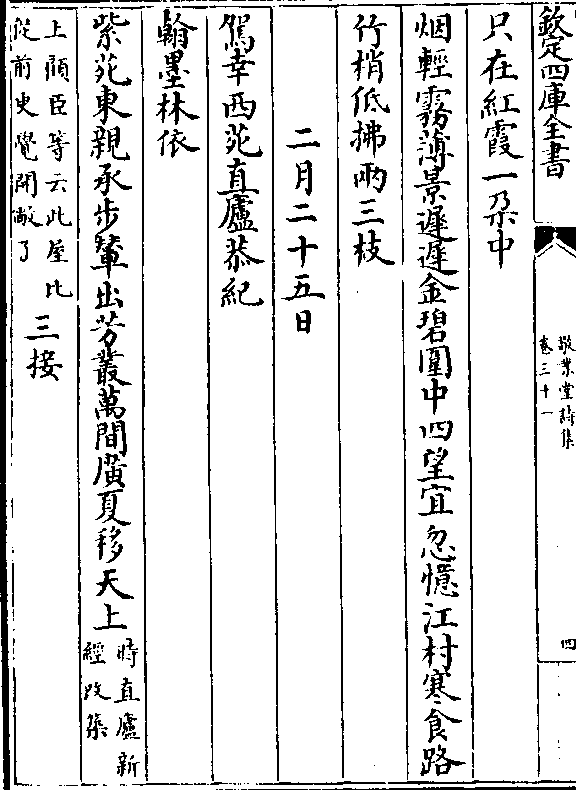 欽定四庫全書
敬業堂詩集
卷三十一
四
只在紅霞一朶中
烟輕霧薄景遲遲金碧圍中四望宜忽憶江村寒食路
竹梢低拂兩三枝
二月二十五日
駕幸西苑直廬恭紀
翰墨林依
紫苑東親承步輦出芳叢萬間廣夏移天上
時直廬新
經改築
上顧臣等云此屋比
從前更覺開敞了
三接